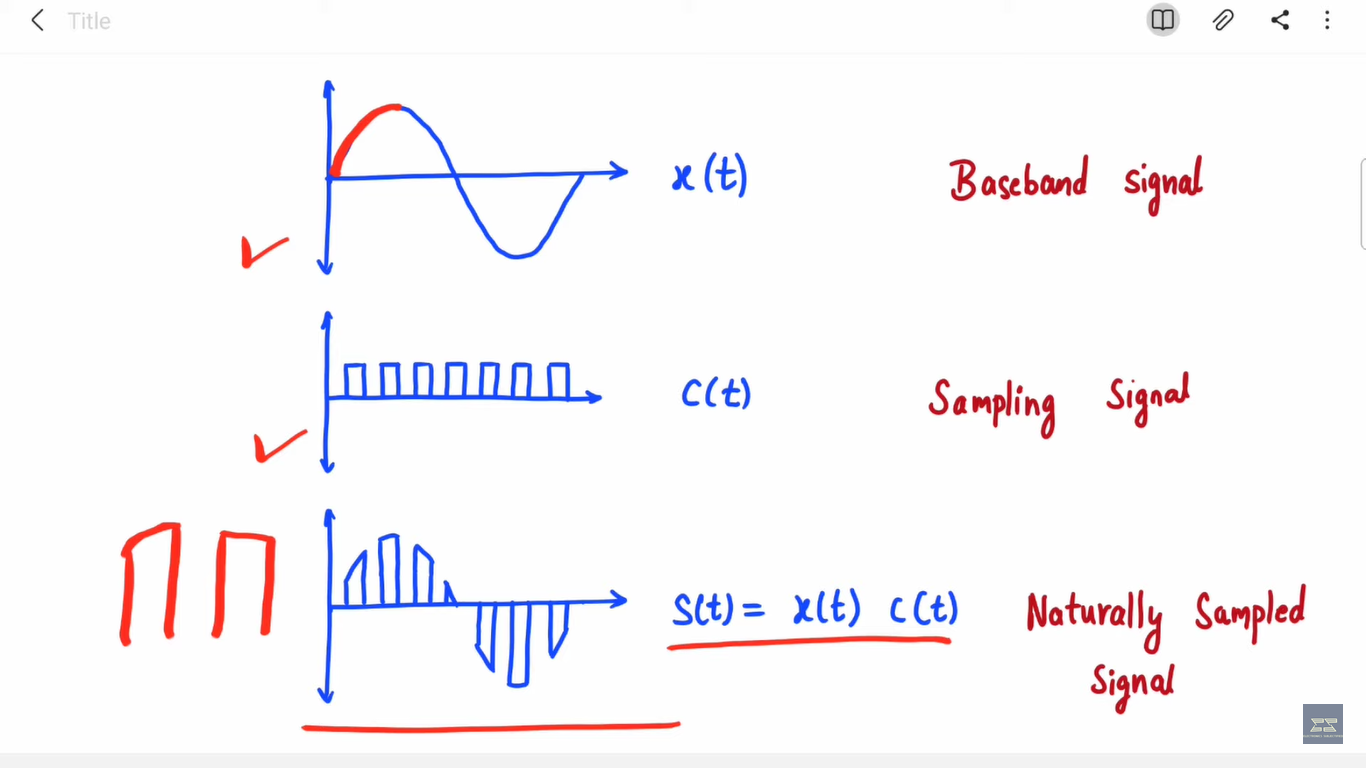 Title
x(t) Baseband signal
C(t) Sampling Signal
S(t) = x(t) c(t) Naturally Sampled
Signal